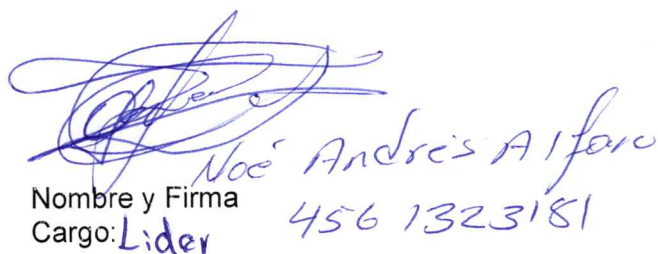 Noé Andrés Alfaro
Nombre y Firma
456 1323181
Cargo: Lider